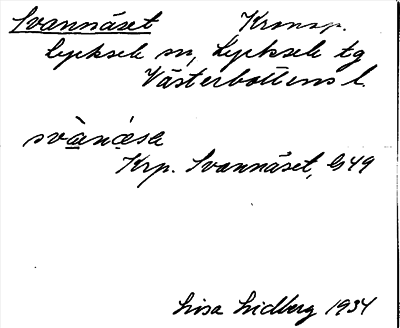 Svannäset Kronop.
Lycksele sn, Lycksele tg
Västerbottens l.
Krp. Svannäset, 49
Lisa Lidberg 1934